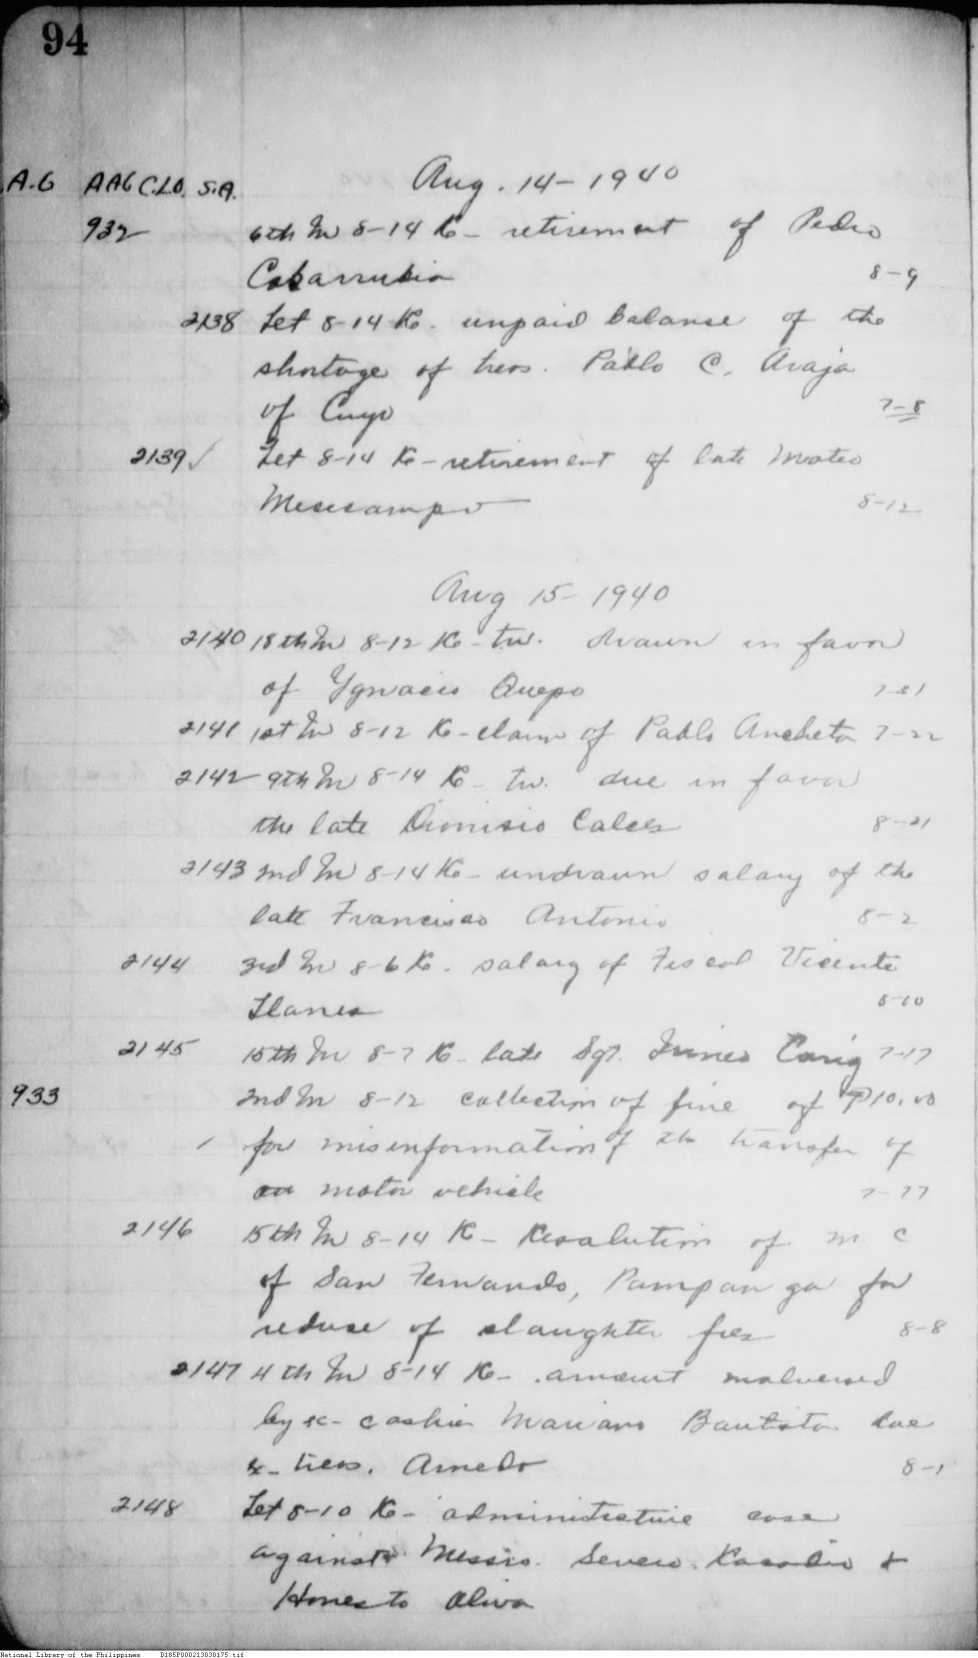 94
A.G AAG C.L.O. S.A. Aug. 14-1940
932 6th In 8-14 K- retirement of Pedro
Cabarrubia 8-9
2138 Let 8-14 K. unpaid balanse of the
shortage of treas. Pablo C. Araja
of Cuyo 7-8
2139 ✓ Let 8-14 K-retirement of late Mateo
8-12
Aug 15-1940
2140 18th In 8-12 K- tw. drawn in favor
of Ygnacio Quepo
2141 1st In 8-12 K-claim of Pablo Ancheta 7-22
2142 9th In 8-14 K- tw. due in favor
the late Dionisio Calces 8-21
2143 2nd In 8-14 K- undrawn salary of the
late Francisco Antonio 8-2
2144 3rd In 8-6 K. salary of Fiscal Vicente
Llanes 8-10
2145 15th In 8-7 K- late Sgt. Irineo Carig 7-17
933 2nd In 8-12 collection of fine of ₱10.00
for misinformation of the transfer of
motor vehicle 7-27
2146 15th In 8-14 K- Resolution of m c
of San Fernando, Pampanga for
reduse of slaughter fees 8-8
2147 4th In 8-14 K- amount malversed
by ex-cashier Mariano Bautista due
ex-treas. Arnedo 8-1
2148 Let 8-10 K- administrative case
against Messrs. Severo &
Honesto Oliva
National Library of the Philippines D185P000213030175.tif